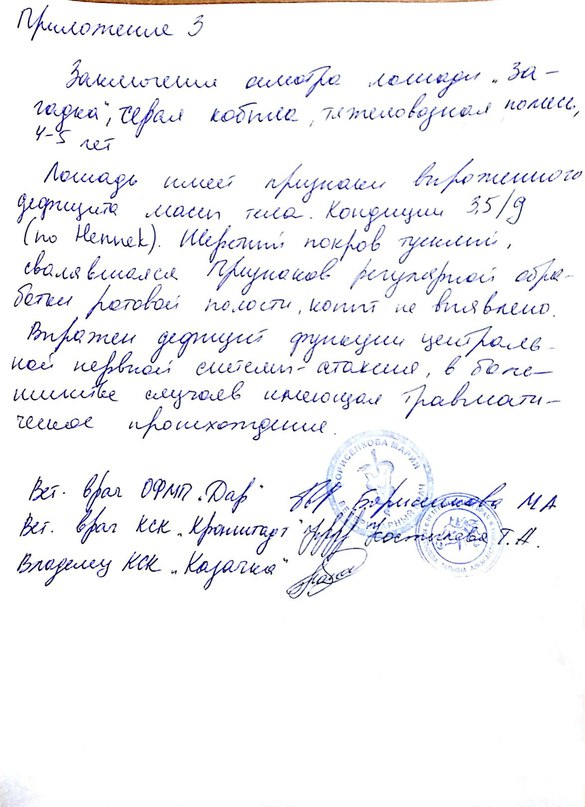 Приложение 3
Заключение осмотра лошади „За-
гадка", серая кобыла, тяжеловозная помесь,
4-5 лет
Лошадь имеет признаки выраженного
дефицита массы тела. Кондиции 3,5/9
(по Hennek). Шерстный покров тусклый,
свалявшаяся Признаков регулярной обра-
ботки ротовой полости, копыт не выявлено.
Выражен дефицит функции централь-
ной нервной системы - атаксия, в боль-
шинстве случаев имеющая травмати-
ческое происхождение.
БОРИСЕНКОВА МАРИЯ
Вет. врач ОФМП „Дар" Борисенкова М А
Вет. врач КСК „Кронштадт" Костикова Т. А.
Владелец КСК „Казачка"